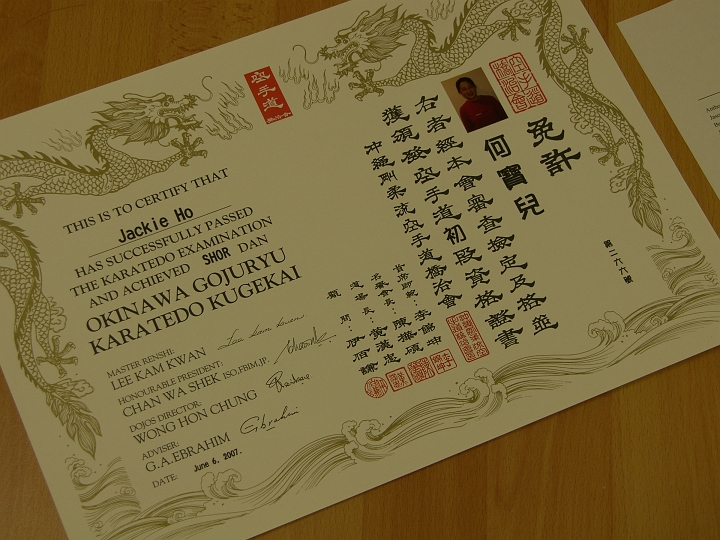 空手道
THIS IS TO CERTIFY THAT
Jackie Ho
HAS SUCCESSFULLY PASSED
THE KARATEDO EXAMINATION
AND ACHIEVED SHOR DAN
OKINAWA GOJURYU
KARATEDO KUGEKAI
MASTER RENSHI:
LEE KAM KWAN
HONOURABLE PRESIDENT:
CHAN WA SHEK ISO.FBIM.JP.
DOJOS DIRECTOR:
WONG HON CHUNG
ADVISER:
G.A.EBRAHIM
DATE: June 6, 2007.
免許
何寶兒
右者經本會審查撿定及格並
獲頒發空手道初段資格證書
沖繩剛柔流空手道
首席師範:李錦坤
名譽會長:陳華碩
道場長:黃漢忠
顧問:伊伯謙
第二六六號